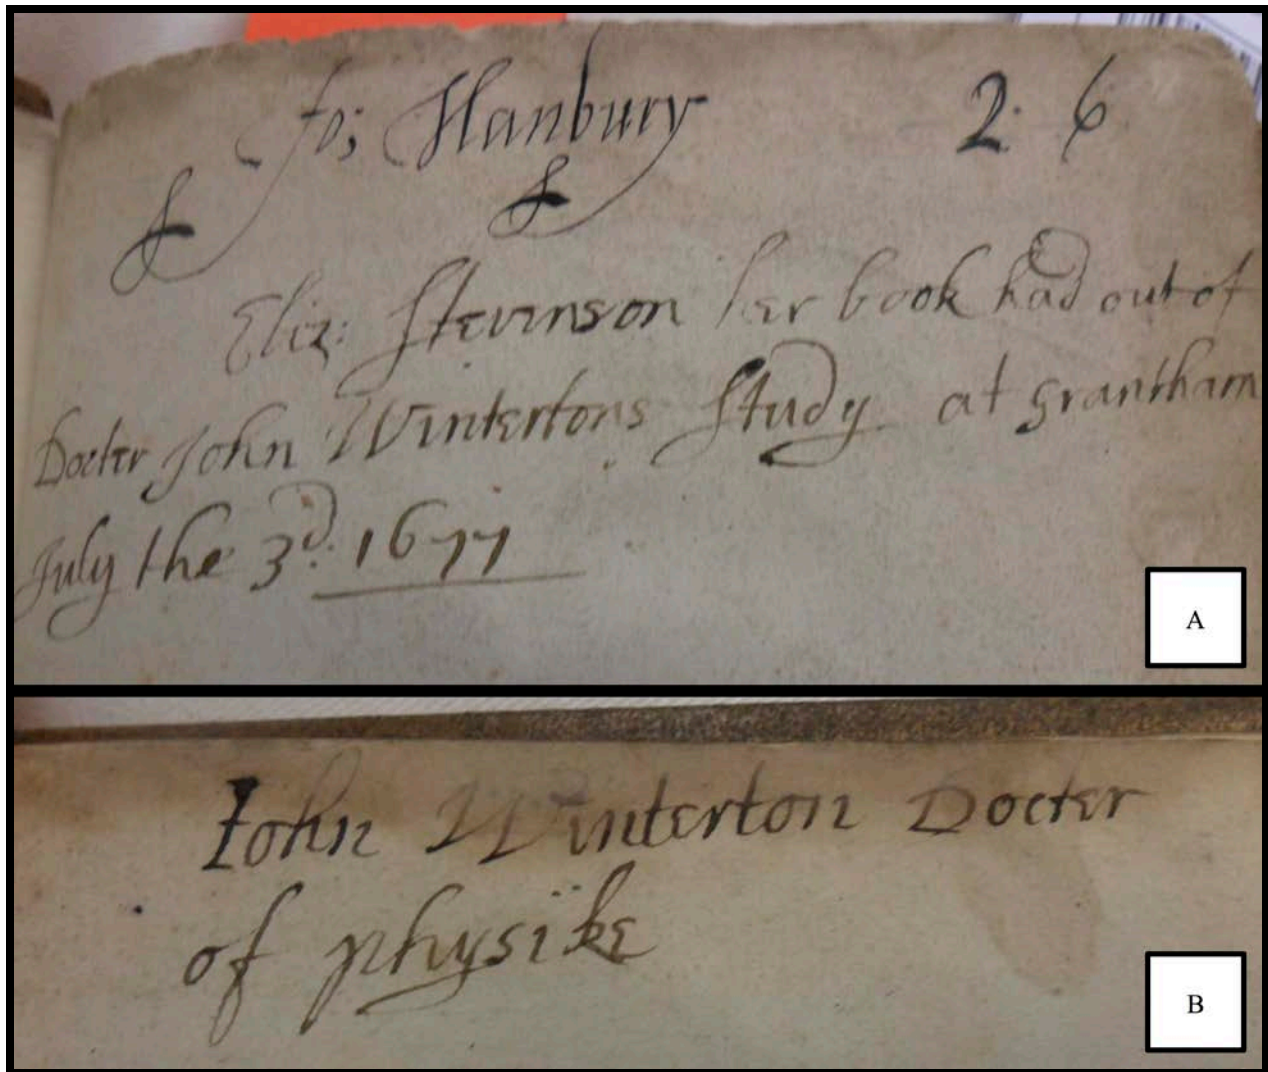 Jo; Hanbury 2. 6
Eliz: Stevenson her book had out of
Docter John Wintertons Study at grantham
July the 3d. 1677
A
John Winterton Docter
of physike
B